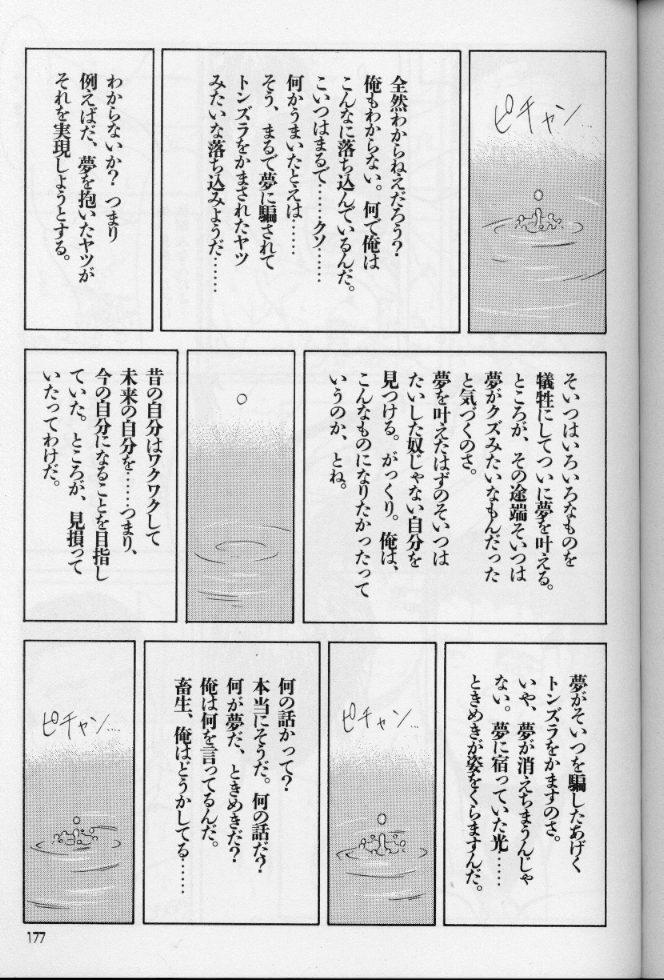 ピチャン…
全然わからねえだろう？
俺もわからない。何で俺は
こんなに落ち込んでいるんだ。
こいつはまるで……クソ……
何かうまいたとえは……
そう、まるで夢に騙されて
トンズラをかまされたヤツ
みたいな落ち込みようだ……
わからないか？　つまり
例えばだ、夢を抱いたヤツが
それを実現しようとする。
そいつはいろいろなものを
犠牲にしてついに夢を叶える。
ところが、その途端そいつは
夢がクズみたいなもんだった
と気づくのさ。
夢を叶えたはずのそいつは
たいした奴じゃない自分を
見つける。がっくり。俺は、
こんなものになりたかったって
いうのか、とね。
昔の自分はワクワクして
未来の自分を……つまり、
今の自分になることを目指し
ていた。ところが、見損って
いたってわけだ。
夢がそいつを騙したあげく
トンズラをかますのさ。
いや、夢が消えちまうんじゃ
ない。夢に宿っていた光……
ときめきが姿をくらますんだ。
ピチャン…
何の話かって？
本当にそうだ。何の話だ？
何が夢だ、ときめきだ？
俺は何を言ってるんだ。
畜生、俺はどうかしてる……
ピチャン…
177